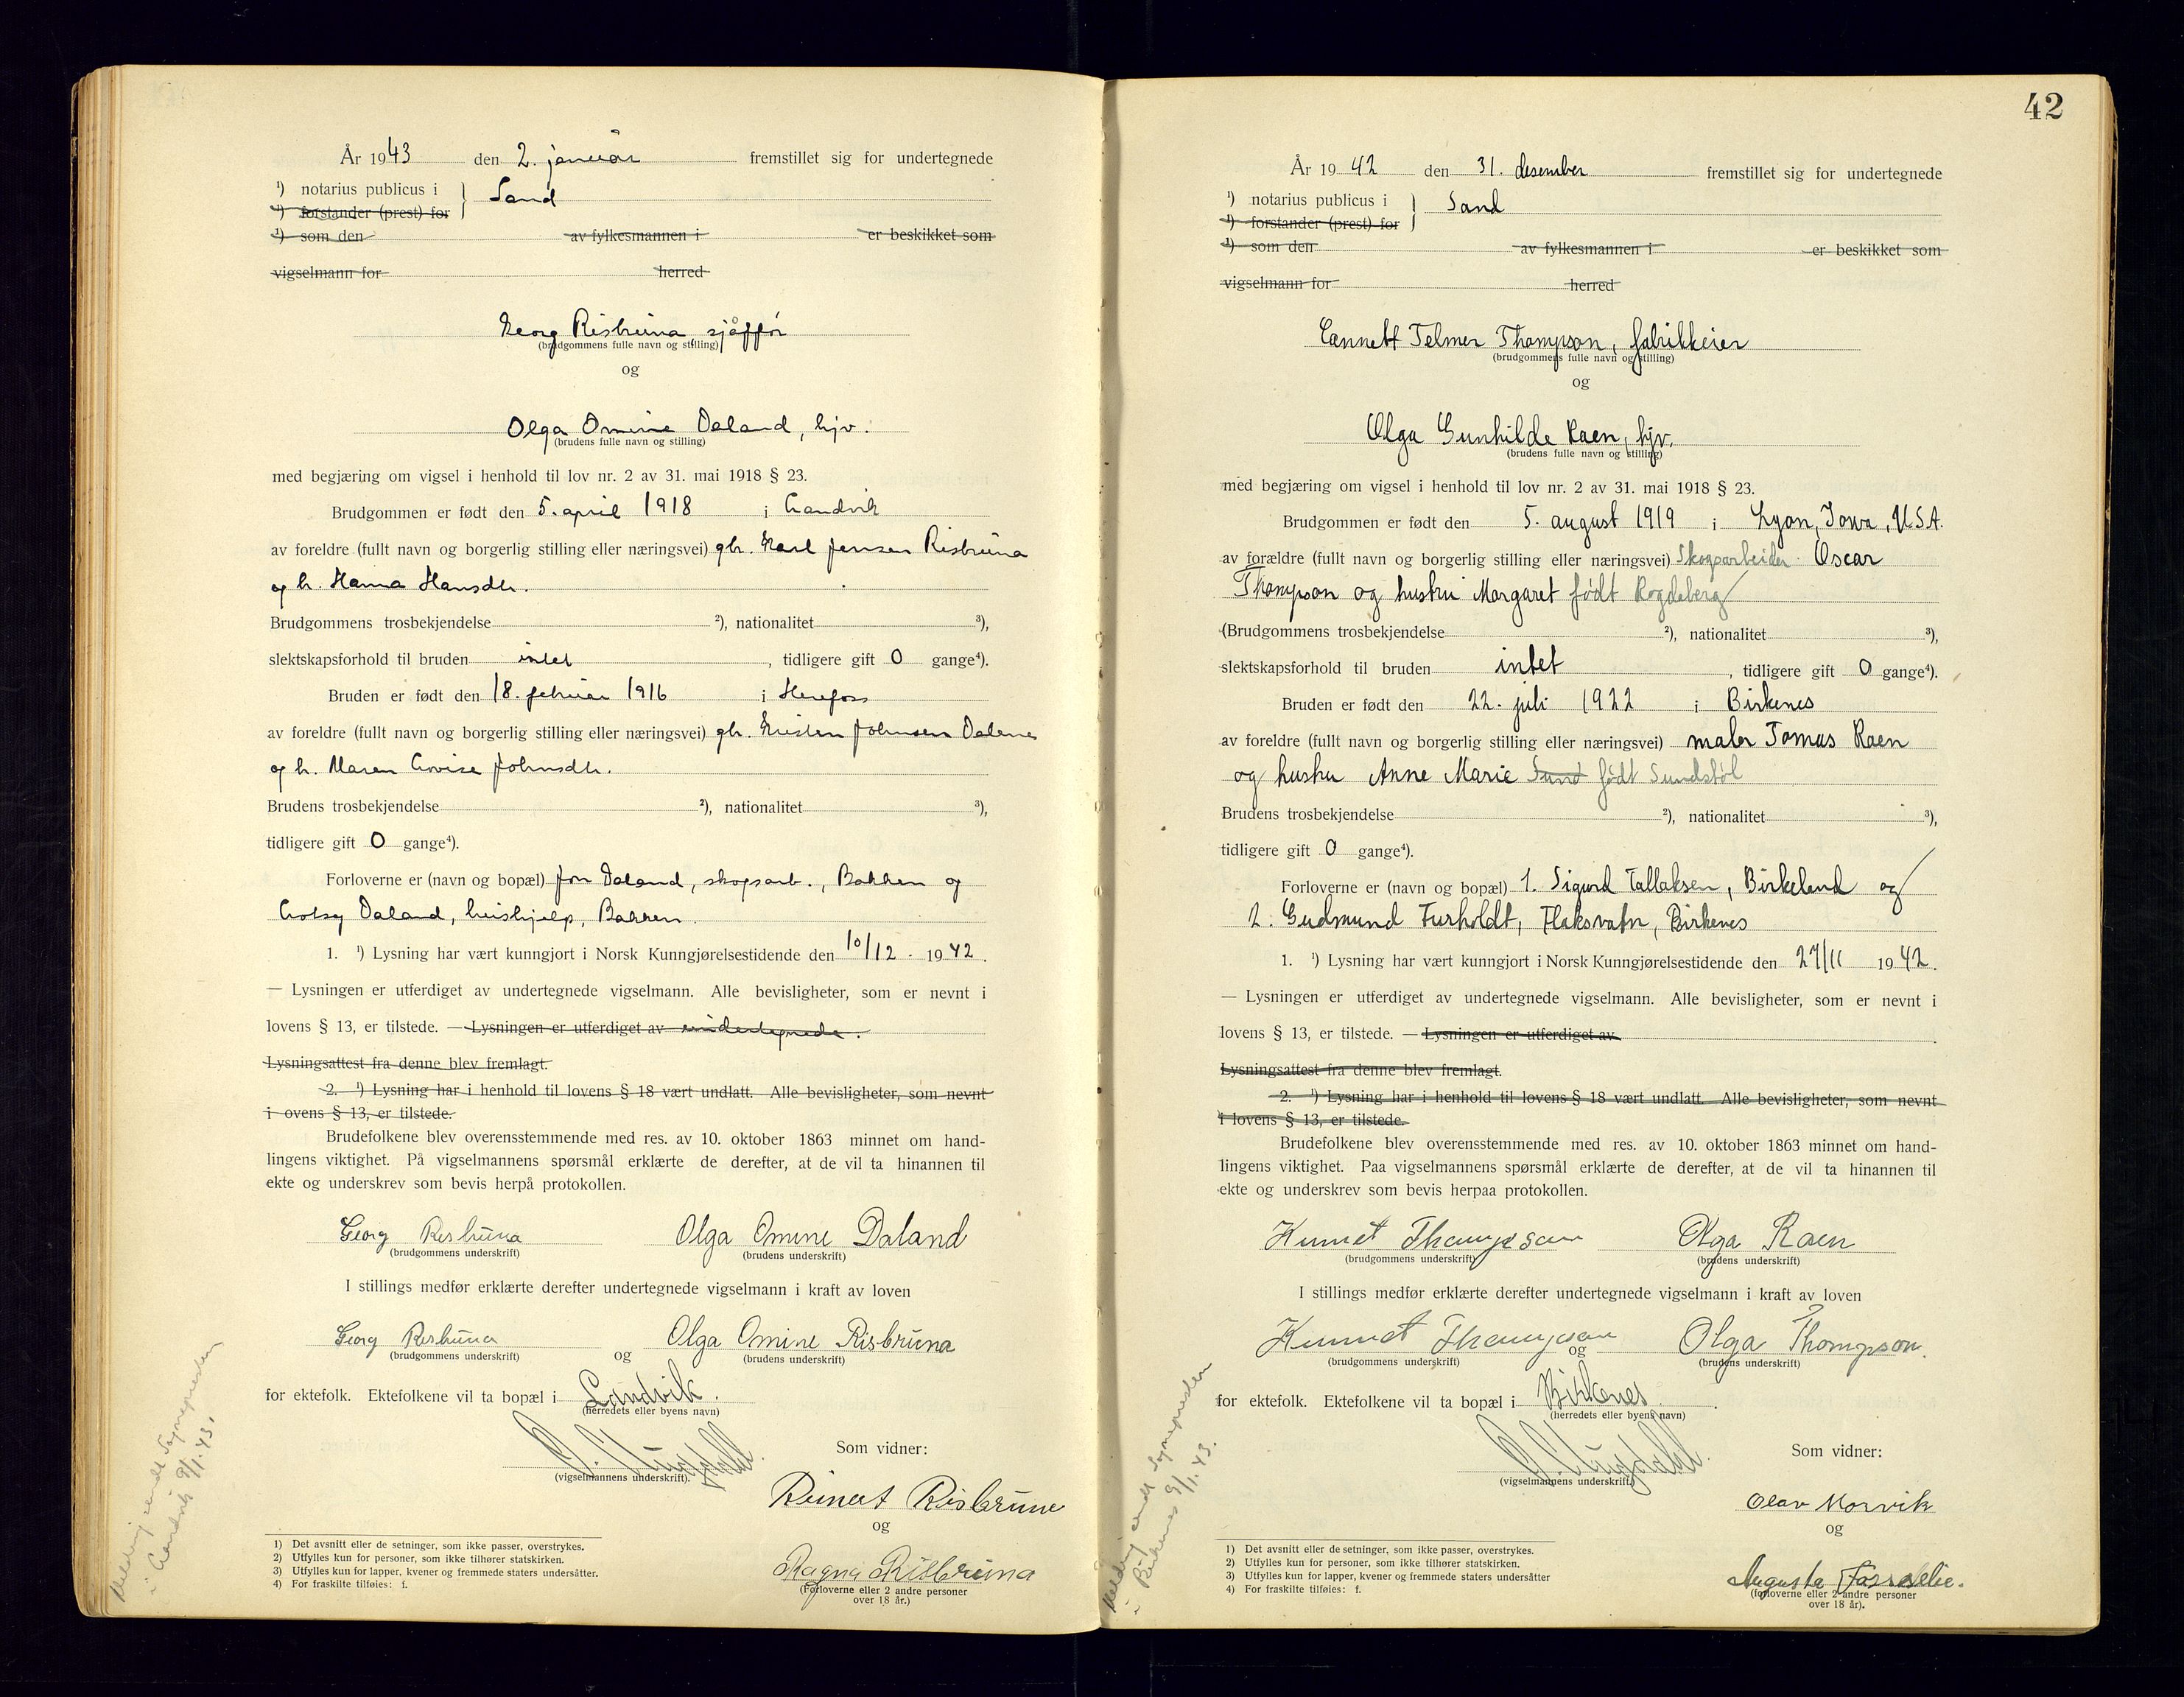 År 1943 den 2. januar fremstillet sig for undertegnede
¹) notarius publicus i } Sand
¹) forstander (prest) for
¹) som den av fylkesmannen i er beskikket som
vigselmann for herred
Georg Risbruna, sjåffør
(brudgommens fulle navn og stilling)
og
Olga Omine Daland, hjv.
(brudens fulle navn og stilling)
med begjæring om vigsel i henhold til lov nr. 2 av 31. mai 1918 § 23.
Brudgommen er født den 5. april 1918 i Landvik
av foreldre (fullt navn og borgerlig stilling eller næringsvei) gbr. Karl Jensen Risbruna
og h. Hanna Hansdtr.
Brudgommens trosbekjendelse ²), nationalitet ³),
slektskapsforhold til bruden intet , tidligere gift 0 gange⁴).
Bruden er født den 18. februar 1916 i Herefoss
av foreldre (fullt navn og borgerlig stilling eller næringsvei) gbr. Kristen Johnsen Dalene
og h. Maren Lovise Johnsdtr.
Brudens trosbekjendelse ²), nationalitet ³),
tidligere gift 0 gange⁴).
Forloverne er (navn og bopæl) Jon Daland, skogsarb., Bakken og
Daland, hushjelp, Bakken.
1. ¹) Lysning har vært kunngjort i Norsk Kunngjørelsestidende den 10/12. 1942.
— Lysningen er utferdiget av undertegnede vigselmann. Alle bevisligheter, som er nevnt i
lovens § 13, er tilstede. — Lysningen er utferdiget av undertegnede.
Lysningsattest fra denne blev fremlagt.
2. ¹) Lysning har i henhold til lovens § 18 vært undlatt. Alle bevisligheter, som nevnt
i ovens § 13, er tilstede.
Brudefolkene blev overensstemmende med res. av 10. oktober 1863 minnet om hand-
lingens viktighet. På vigselmannens spørsmål erklærte de derefter, at de vil ta hinannen til
ekte og underskrev som bevis herpå protokollen.
Georg Risbruna Olga Omine Daland
(brudgommens underskrift) (brudens underskrift)
I stillings medfør erklærte derefter undertegnede vigselmann i kraft av loven
Georg Risbruna og Olga Omine Risbruna
(brudgommens underskrift) (brudens underskrift)
for ektefolk. Ektefolkene vil ta bopæl i Landvik.
(herredets eller byens navn)
Som vidner:
(vigselmannens underskrift).
Reinert Risbruna
og
Ragna Risbruna
(Forloverne eller 2 andre personer
over 18 år.)
1) Det avsnitt eller de setninger, som ikke passer, overstrykes.
2) Utfylles kun for personer, som ikke tilhører statskirken.
3) Utfylles kun for lapper, kvener og fremmede staters undersåtter.
4) For fraskilte tilføies: f.
Melding sendt Sognepresten
i Landvik 9/1.43.
42
År 1942 den 31. desember fremstillet sig for undertegnede
¹) notarius publicus i } Sand
¹) forstander (prest) for
¹) som den av fylkesmannen i er beskikket som
vigselmann for herred
Cennett Telmer Thompson, fabrikkeier
(brudgommens fulle navn og stilling)
og
Olga Gunhilde Raen, hjv.
(brudens fulle navn og stilling)
med begjæring om vigsel i henhold til lov nr. 2 av 31. mai 1918 § 23.
Brudgommen er født den 5. august 1919 i Lyon, Iowa, U.S.A.
av forældre (fullt navn og borgerlig stilling eller næringsvei) Skogsarbeider Oscar
Thompson og hustru Margaret født Rogdeberg
(Brudgommens trosbekjendelse ²), nationalitet ³),
slektskapsforhold til bruden intet , tidligere gift 0 gange⁴).
Bruden er født den 22. juli 1922 i Birkenes
av foreldre (fullt navn og borgerlig stilling eller næringsvei) maler Tomas Raen
og hustru Anne Marie Sund født Sundstöl
Brudens trosbekjendelse ²), nationalitet ³),
tidligere gift 0 gange⁴).
Forloverne er (navn og bopæl) 1. Sigurd Tallaksen, Birkeland og
2. Gudmund Furholdt, Flaksvatn, Birkenes
1. ¹) Lysning har vært kunngjort i Norsk Kunngjørelsestidende den 27/11 1942.
— Lysningen er utferdiget av undertegnede vigselmann. Alle bevisligheter, som er nevnt i
lovens § 13, er tilstede. — Lysningen er utferdiget av
Lysningsattest fra denne blev fremlagt.
2. ¹) Lysning har i henhold til lovens § 18 vært undlatt. Alle bevisligheter, som nevnt
i lovens § 13, er tilstede.
Brudefolkene blev overensstemmende med res. av 10. oktober 1863 minnet om hand-
lingens viktighet. Paa vigselmannens spørsmål erklærte de derefter, at de vil ta hinannen til
ekte og underskrev som bevis herpaa protokollen.
Kennet Thompson Olga Raen
(brudgommens underskrift) (brudens underskrift)
I stillings medfør erklærte derefter undertegnede vigselmann i kraft av loven
Kennet Thompson og Olga Thompson.
(brudgommens underskrift) (brudens underskrift)
for ektefolk. Ektefolkene vil ta bopæl i Birkenes.
(herredets eller byens navn)
Som vidner:
(vigselmannens underskrift)
Olav Morvik
og
Augusta
(forloverne eller 2 andre personer
over 18 år).
1) Det avsnitt eller de setninger, som ikke passer, overstrykes.
2) Utfylles kun for personer, som ikke tilhører statskirken.
3) Utfylles kun for lapper, kvener og fremmede staters undersåtter
4) For fraskilte tilføies: f.
Melding sendt Sognepresten
i Birkenes 9/1.43.